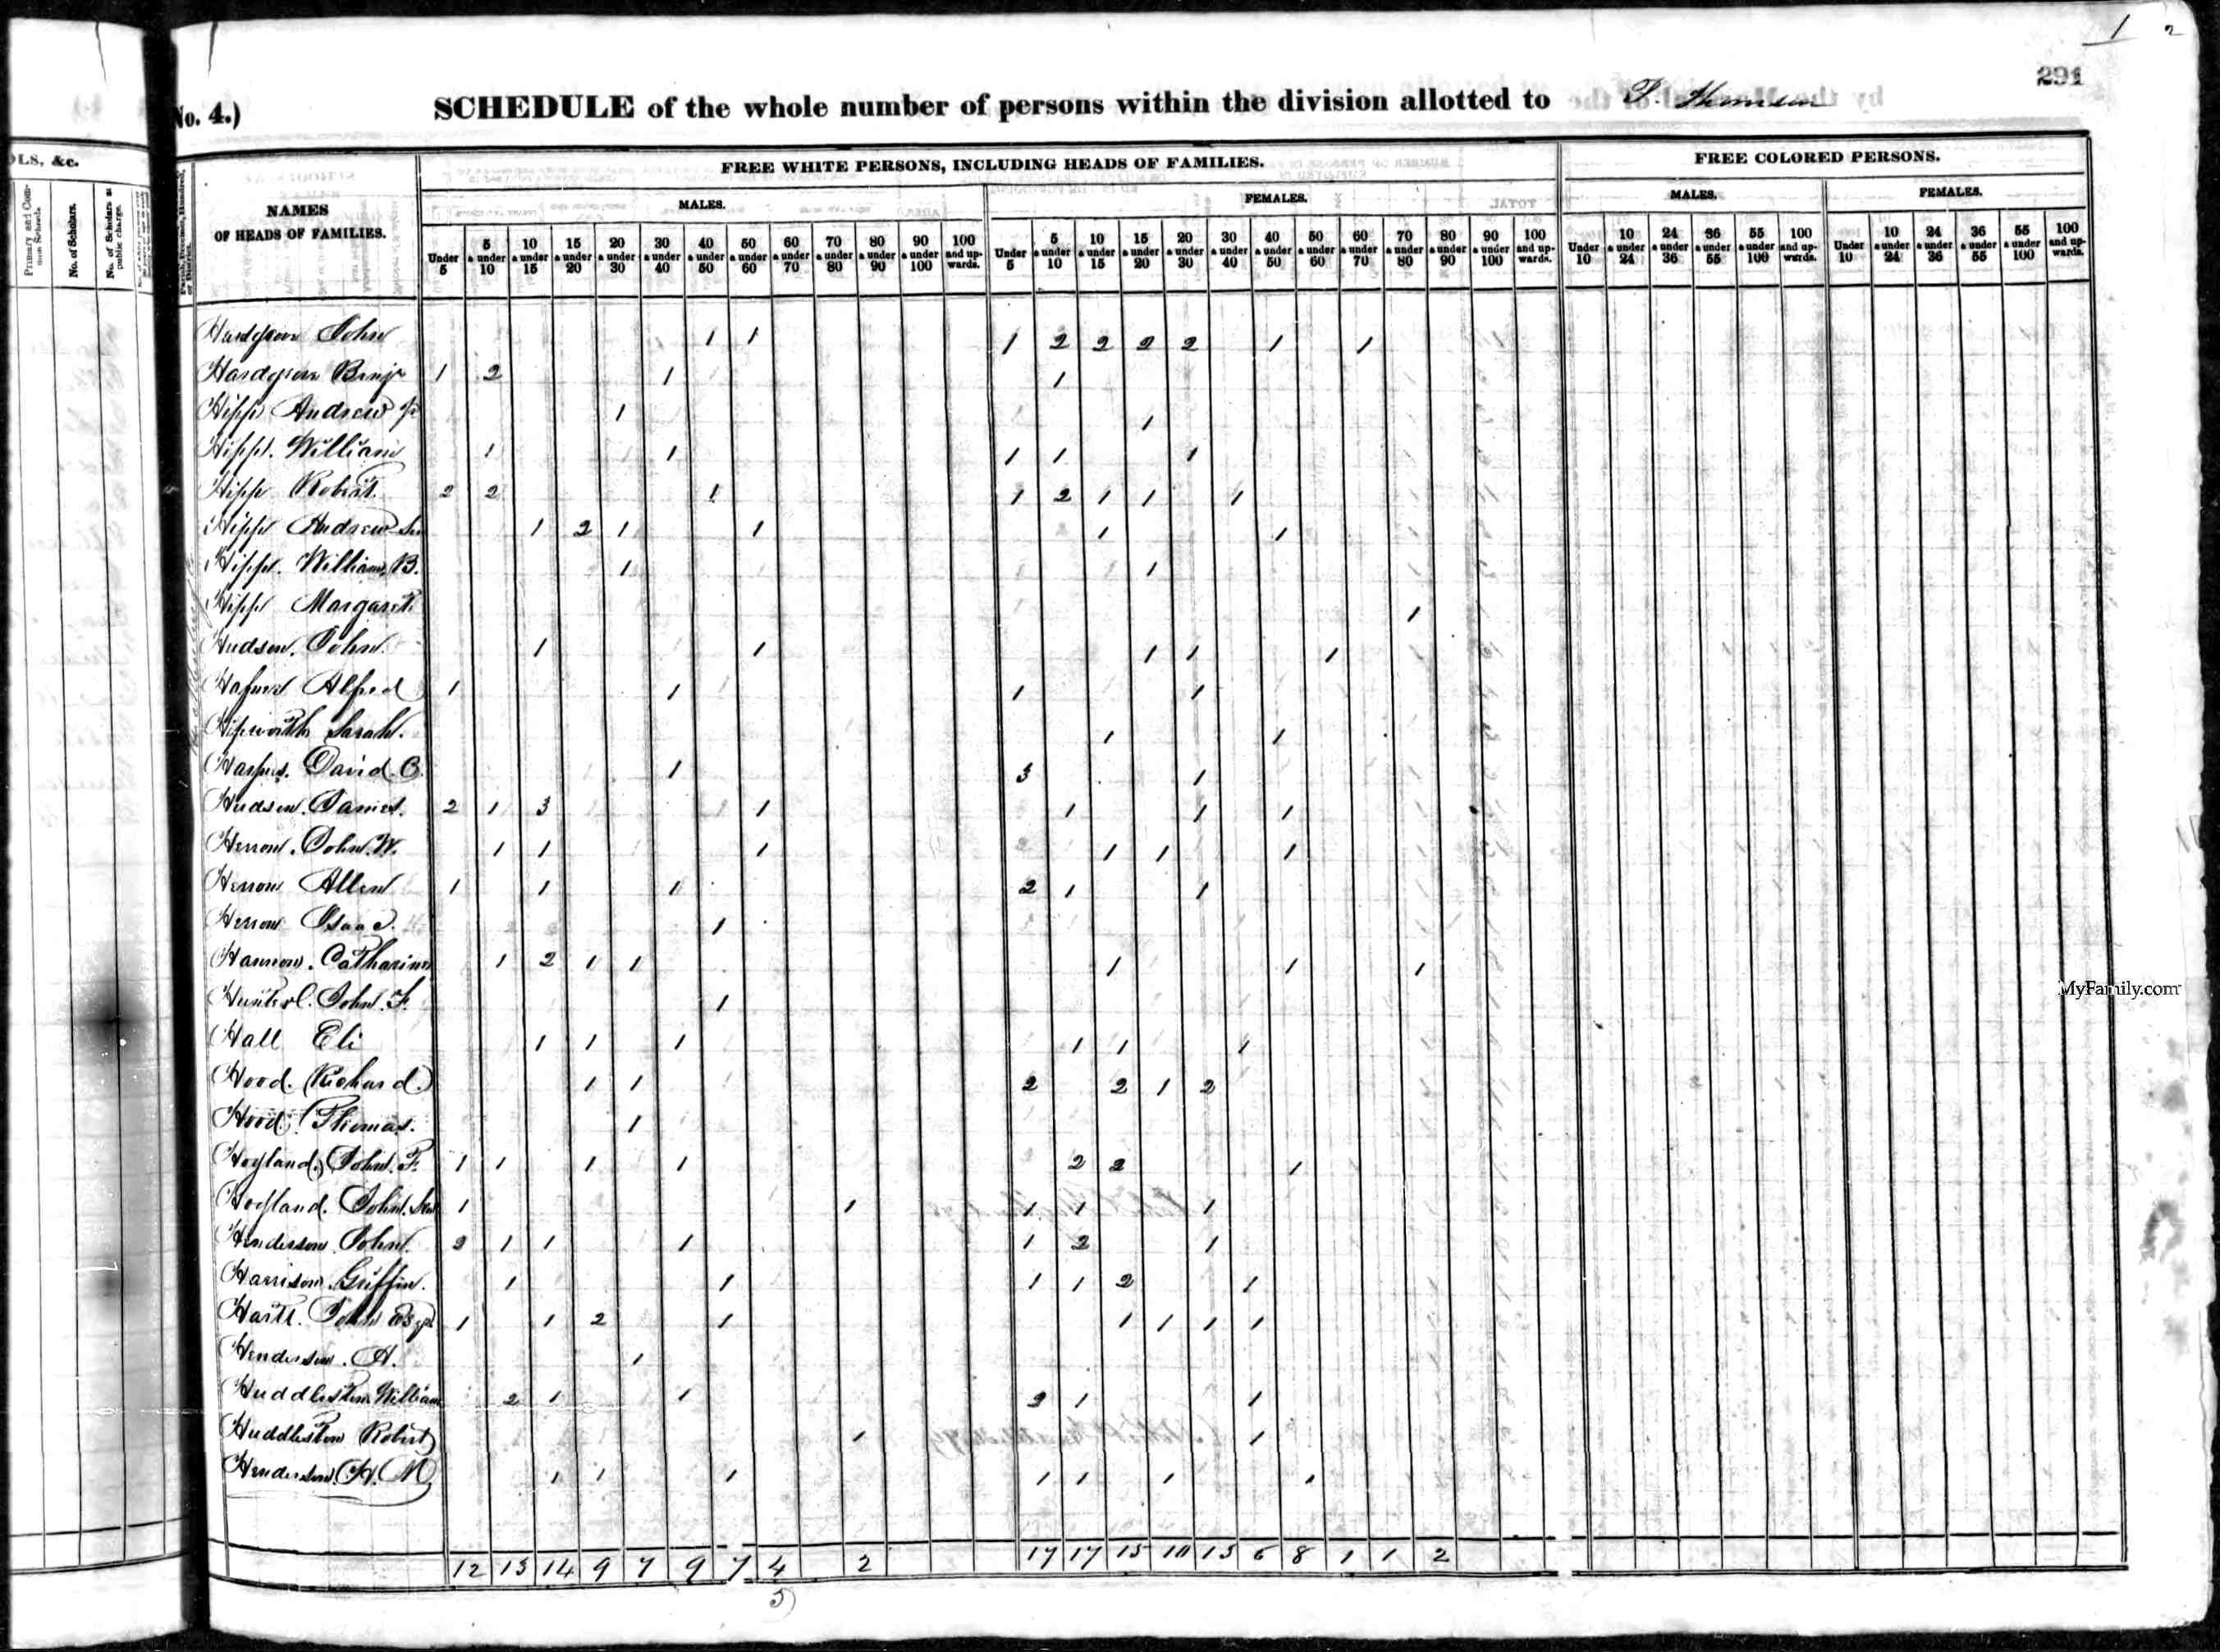 1 2
291
No. 4.) SCHEDULE of the whole number of persons within the division allotted to
OLS, &c.
FREE WHITE PERSONS, INCLUDING HEADS OF FAMILIES.
FREE COLORED PERSONS.
Primary and Common Schools.
No. of Scholars.
No. of Scholars at public charge.
NAMES
OF HEADS OF FAMILIES.
MALES.
FEMALES.
MALES.
FEMALES.
Under 5 | 5 & under 10 | 10 & under 15 | 15 & under 20 | 20 & under 30 | 30 & under 40 | 40 & under 50 | 50 & under 60 | 60 & under 70 | 70 & under 80 | 80 & under 90 | 90 & under 100 | 100 and upwards. | Under 5 | 5 & under 10 | 10 & under 15 | 15 & under 20 | 20 & under 30 | 30 & under 40 | 40 & under 50 | 50 & under 60 | 60 & under 70 | 70 & under 80 | 80 & under 90 | 90 & under 100 | 100 and upwards. | Under 10 | 10 & under 24 | 24 & under 36 | 36 & under 55 | 55 & under 100 | 100 and upwards. | Under 10 | 10 & under 24 | 24 & under 36 | 36 & under 55 | 55 & under 100 | 100 and upwards.
John 1 1 1 2 2 2 2 1 1
Benj 1 2 1 1
Hipp Andrew Jr 1 1
Hipp William 1 1 1 1 1
Hipp Robert 2 2 1 1 2 1 1 1
Hipp Andrew Sen 1 2 1 1 1 1
Hipp William B. 1 1
Hipp Margaret 1
Hudson John 1 1 1 1 1
Alfred 1 1 1 1
Hipworth Sarah 1 1
David C. 1 3 1
Hudson James 2 1 3 1 1 1 1
Herron John W. 1 1 1 1 1 1
Herron Allen 1 1 1 2 1 1
Herron Isaac 1
Catharine 1 2 1 1 1 1 1
John F. 1
Hall Eli 1 1 1 1 1 1
Hood Richard 1 1 2 2 1 2
Hood Thomas 1
Hoyland John F. 1 1 1 1 2 2 1
Hoyland John Sen 1 1 1 1 1
Henderson John 3 1 1 1 1 2 1
Harrison Griffin 1 1 1 1 2 1
John Esqr 1 1 2 1 1 1 1 1
Henderson A. 1
Huddleston William 2 1 1 3 1 1
Huddleston Robert 1 1
Henderson H. M 1 1 1 1 1 1 1
12 13 14 9 7 9 7 4 2 17 17 15 10 13 6 8 1 1 2
5
MyFamily.com